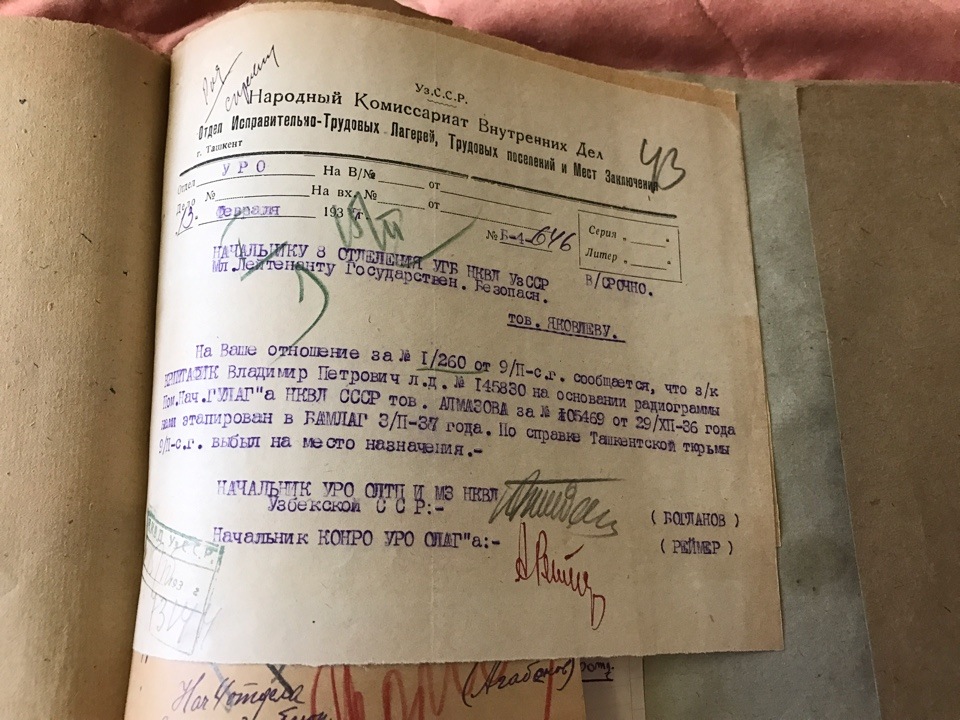 Уз.С.С.Р.
Народный Комиссариат Внутренних Дел
Отдел Исправительно-Трудовых Лагерей, Трудовых поселений и Мест Заключения
г. Ташкент
43
Отдел УРО На В/№ от
Дело № На вх. № от
13. Февраля 193
№ Б-1-646
Серия „ "
Литер „ "
НАЧАЛЬНИКУ 8 ОТДЕЛЕНИЯ УГБ НКВД УзССР
Мл.Лейтенанту Государствен. Безопасн.
В/СРОЧНО.
тов. ЯКОВЛЕВУ.
На Ваше отношение за № I/260 от 9/П-с.г. сообщается, что з/к
Владимир Петрович л.д. № 145830 на основании радиограммы
Пом.Нач.ГУЛАГ"а НКВД СССР тов. АЛМАЗОВА за № от 29/ХП-36 года
нами этапирован в БАМЛАГ 3/П-37 года. По справке Ташкентской тюрьмы
9/П-с.г. выбыл на место назначения.-
НАЧАЛЬНИК УРО ОЛТП И МЗ НКВД
Узбекской С С Р:-
( БОГДАНОВ )
Начальник КОНРО УРО ОЛАГ"а:-
( РЕЙМЕР )
Нач 4 отдела
(Агабеков)